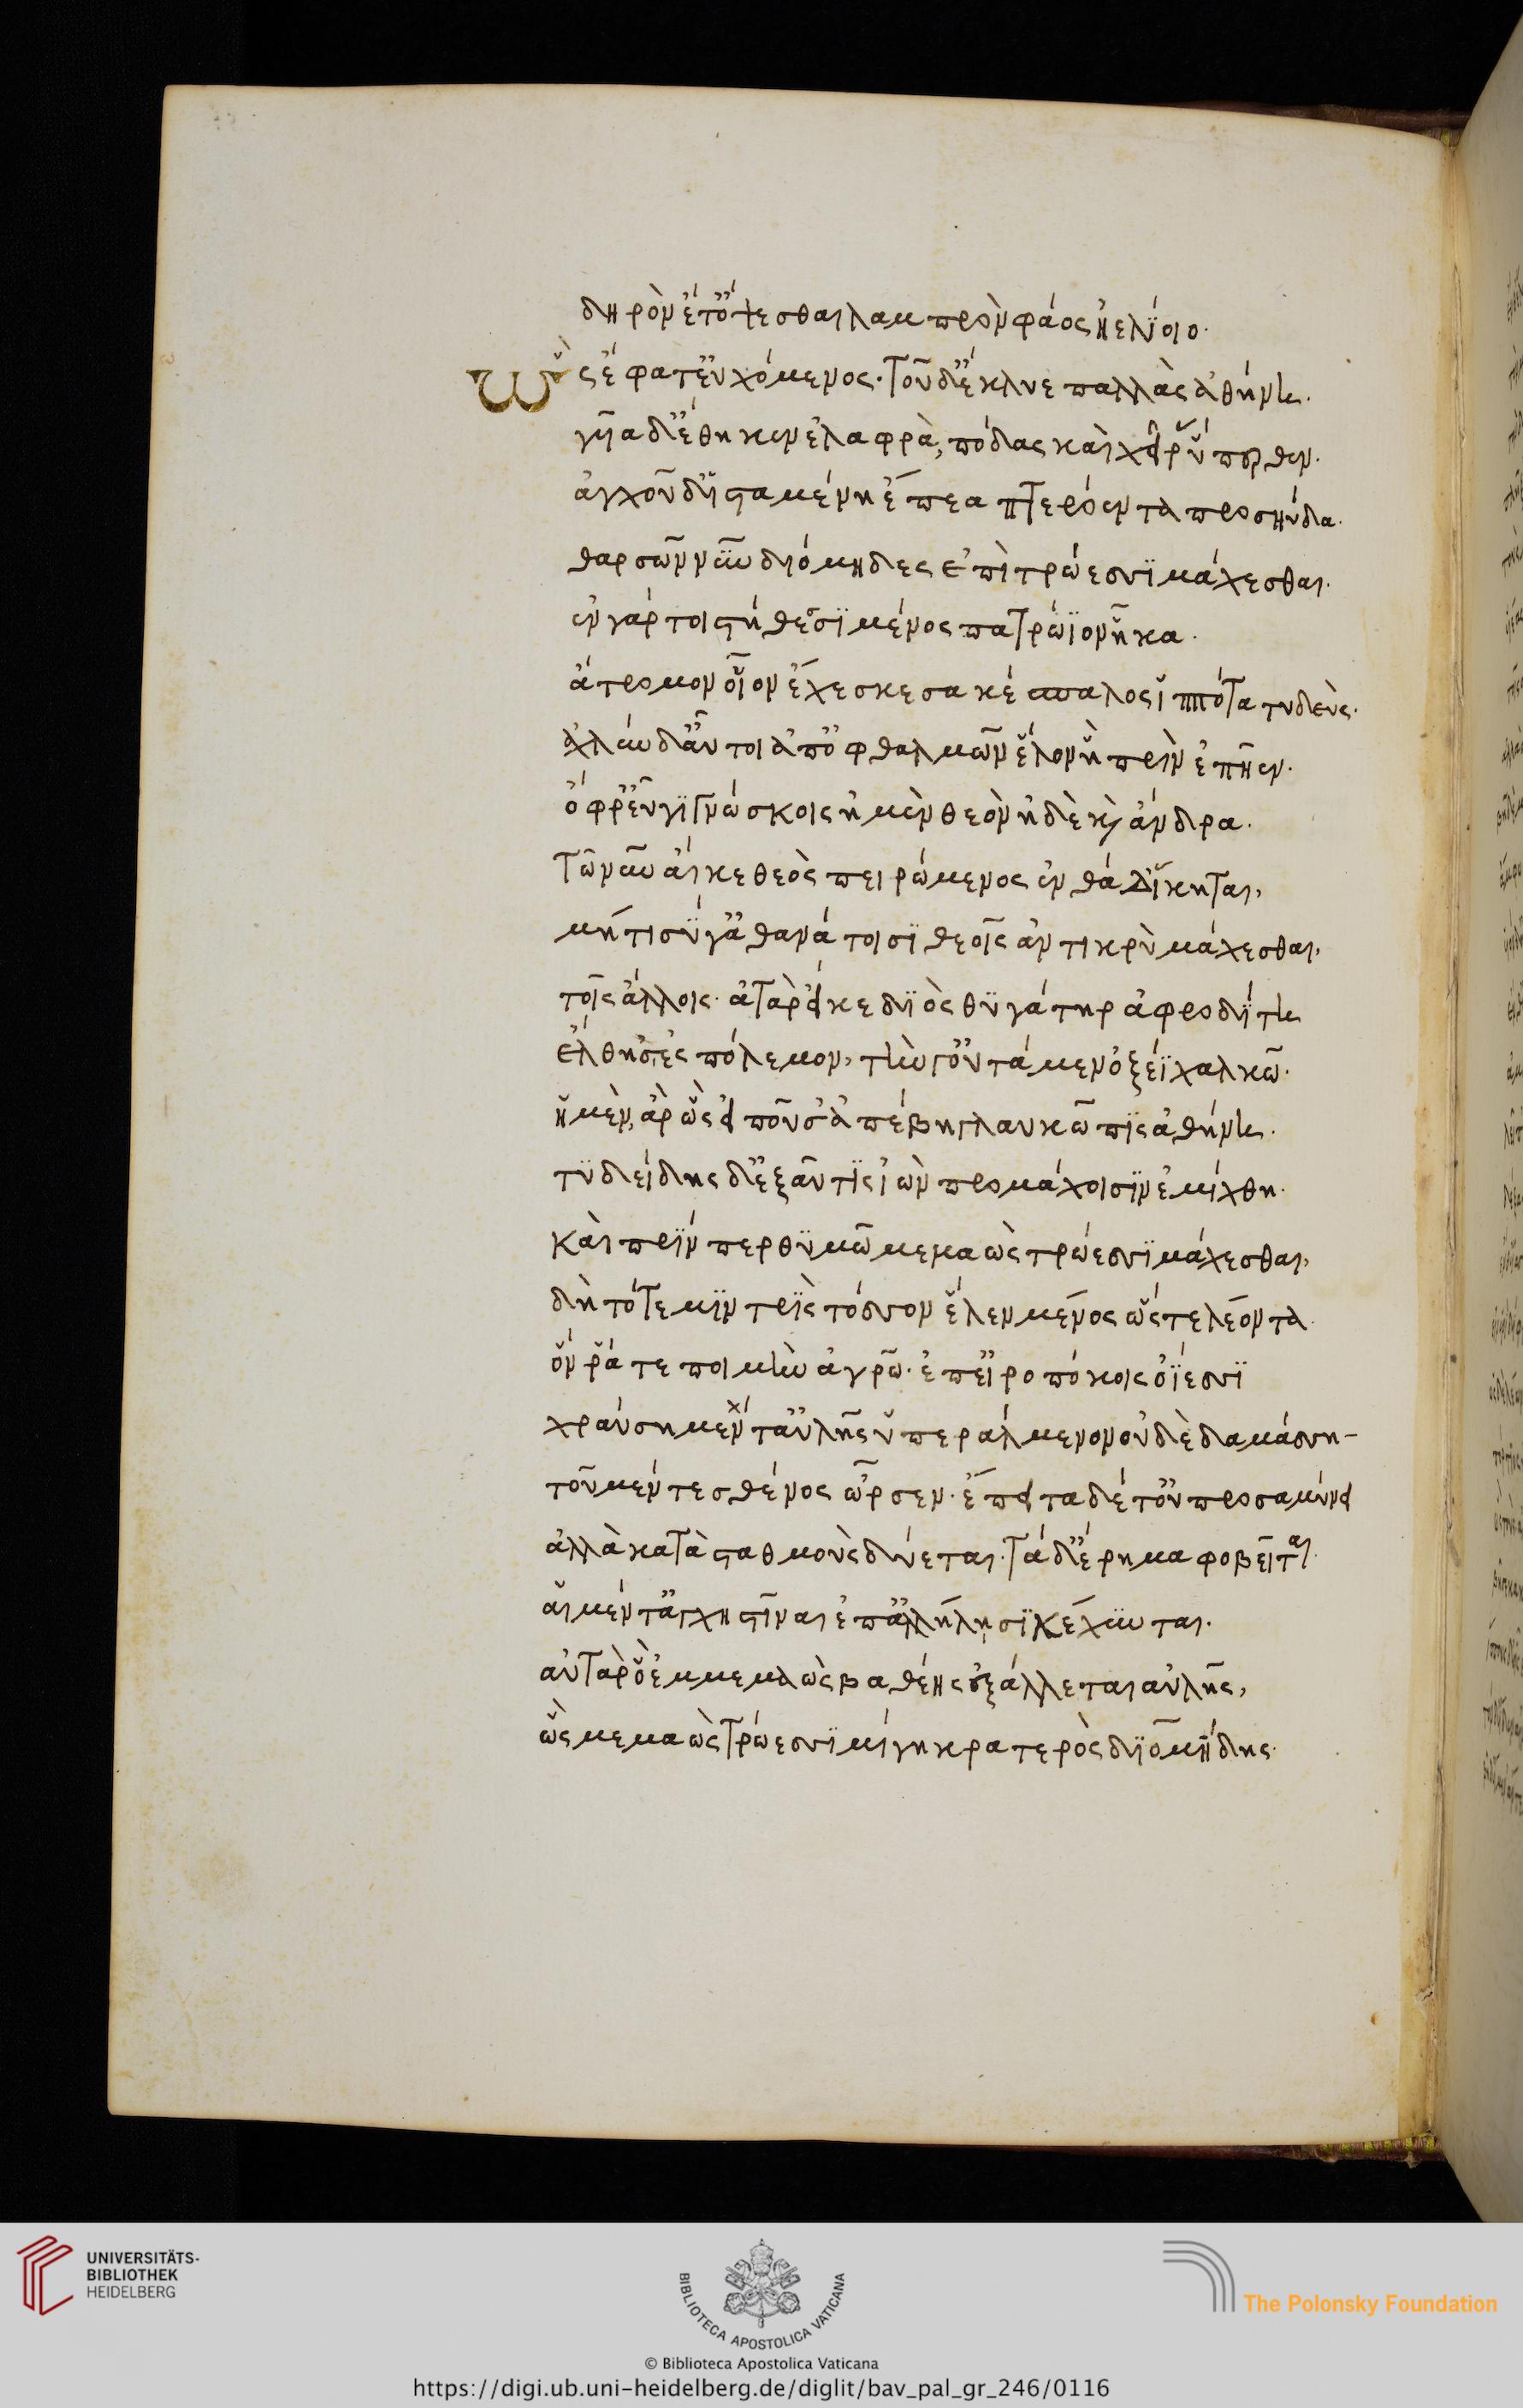 δηρὸν ἔτ' ὄψεσθαι λαμπρὸν φάος ἠελίοιο.
Ὣς ἔφατ' εὐχόμενος. τοῦ δ' ἔκλυε παλλὰς ἀθήνη.
γυῖα δ' ἔθηκεν ἐλαφρὰ, πόδας καὶ χεῖρ ὕπερθεν.
ἀγχοῦ δ' ἱσταμένη ἔπεα πτερόεντα προσηύδα.
θαρσῶν νῦν διόμηδες ἐπὶ τρώεσσι μάχεσθαι.
ἐν γάρ τοι στήθεσσι μένος πατρώϊον ἧκα.
ἄτρομον οἷον ἔχεσκε σακέσπαλος ἱππότα τυδεὺς.
ἀχλὺν δ' αὖ τοι ἀπ' ὀφθαλμῶν ἕλον ἣ πρὶν ἐπῆεν.
ὄφρ' εὖ γιγνώσκοις ἠμὲν θεὸν ἠδὲ καὶ ἄνδρα.
τῶ νῦν αἴ κε θεὸς πειρώμενος ἐνθάδ' ἵκηται,
μή τι σύ γ' ἀθανάτοισι θεοῖς ἀντικρὺ μάχεσθαι,
τοῖς ἄλλοις. ἀτὰρ εἴ κε διὸς θυγάτηρ ἀφροδίτη
ἔλθησ' ἐς πόλεμον, τὴν γ' οὐτάμεν ὀξέϊ χαλκῶ.
ἡ μὲν ἂρ ὣς εἰποῦσ' ἀπέβη γλαυκῶπις ἀθήνη.
τυδείδης δ' ἐξαῦτις ἰὼν προμάχοισιν ἐμίχθη.
καὶ πρίν περ θυμῶ μεμαὼς τρώεσσι μάχεσθαι,
δὴ τότε μιν τρὶς τόσσον ἕλεν μένος ὥς τε λέοντα
ὅν ῥά τε ποιμὴν ἀγρῶ. ἐπ' εἰροπόκοις ὀΐεσσι
χραύση μέν τ' αὐλῆς ὑπεράλμενον οὐδὲ δαμάσση–
τοῦ μέν τε σθένος ὦρσεν. ἔπειτα δέ τ' οὐ προσαμύνει
ἀλλὰ κατὰ σταθμοὺς δύεται. τὰ δ' ἔρημα φοβεῖται.
αἱ μέν τ' ἀγχηστῖναι ἐπ' ἀλλήλησι κέχυνται.
αὐτὰρ ὃ ἐμμεμαὼς βαθέης ἐξάλλεται αὐλῆς,
ὣς μεμαὼς τρώεσσι μίγη κρατερὸς διομήδης.
UNIVERSITÄTS-
BIBLIOTHEK
HEIDELBERG
BIBLIOTECA APOSTOLICA VATICANA
The Polonsky Foundation
© Biblioteca Apostolica Vaticana
https://digi.ub.uni-heidelberg.de/diglit/bav_pal_gr_246/0116